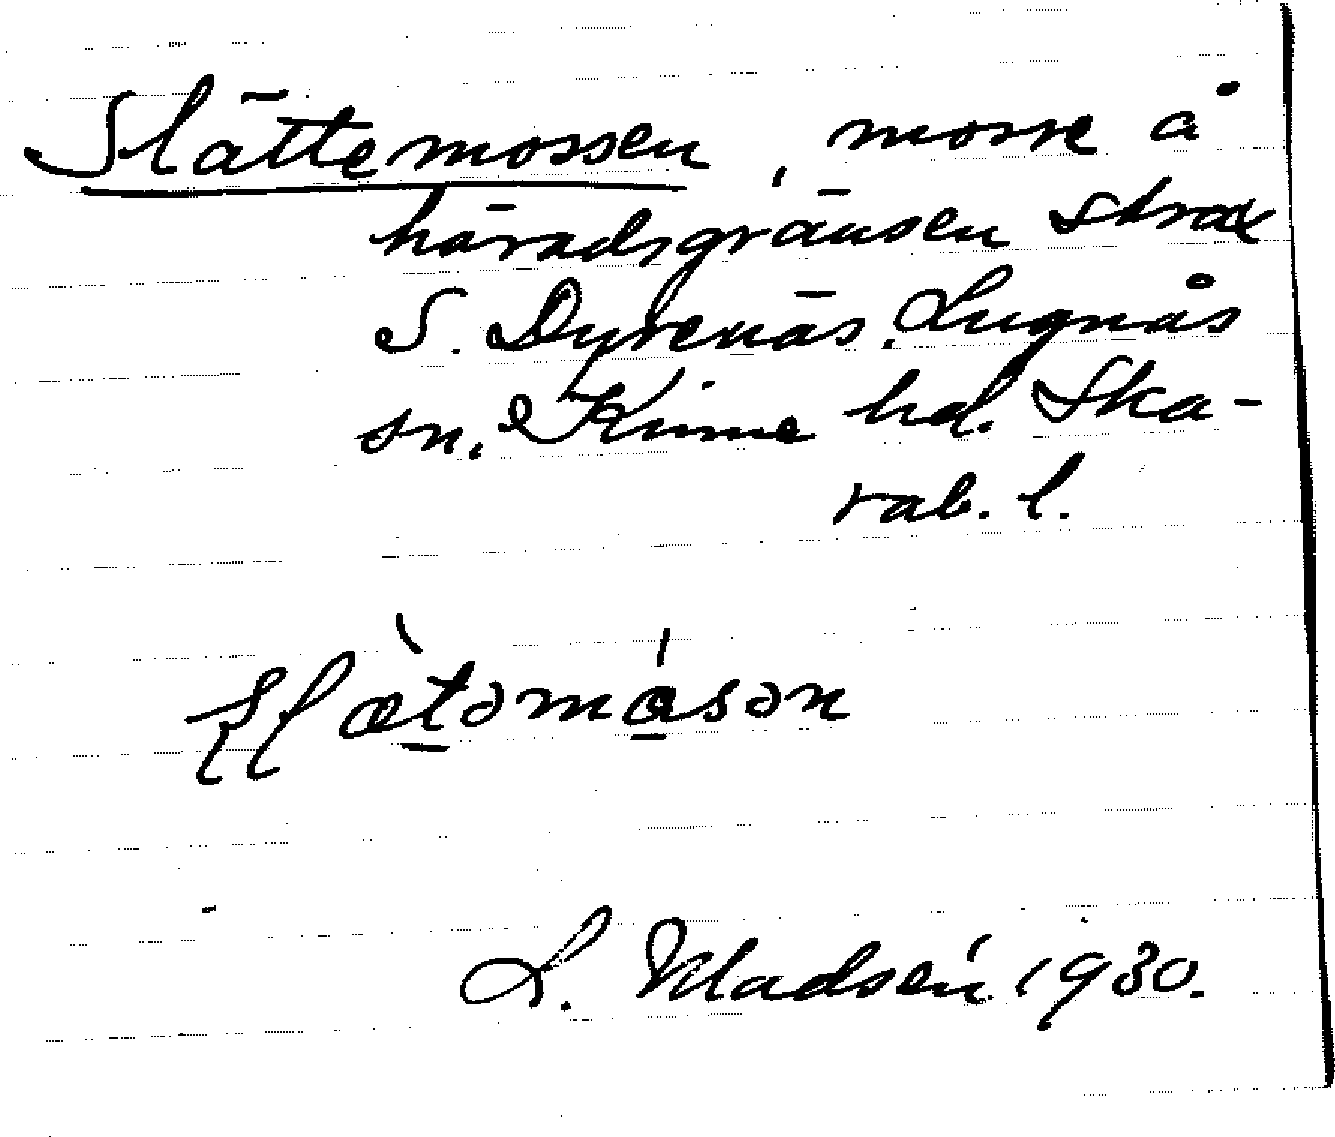 Slättemossen, mosse å
häradsgränsen strax
S. Dyrenäs, Lugnås
sn, Kinne hd. Ska-
rab. l.
L. Madsén 1930.